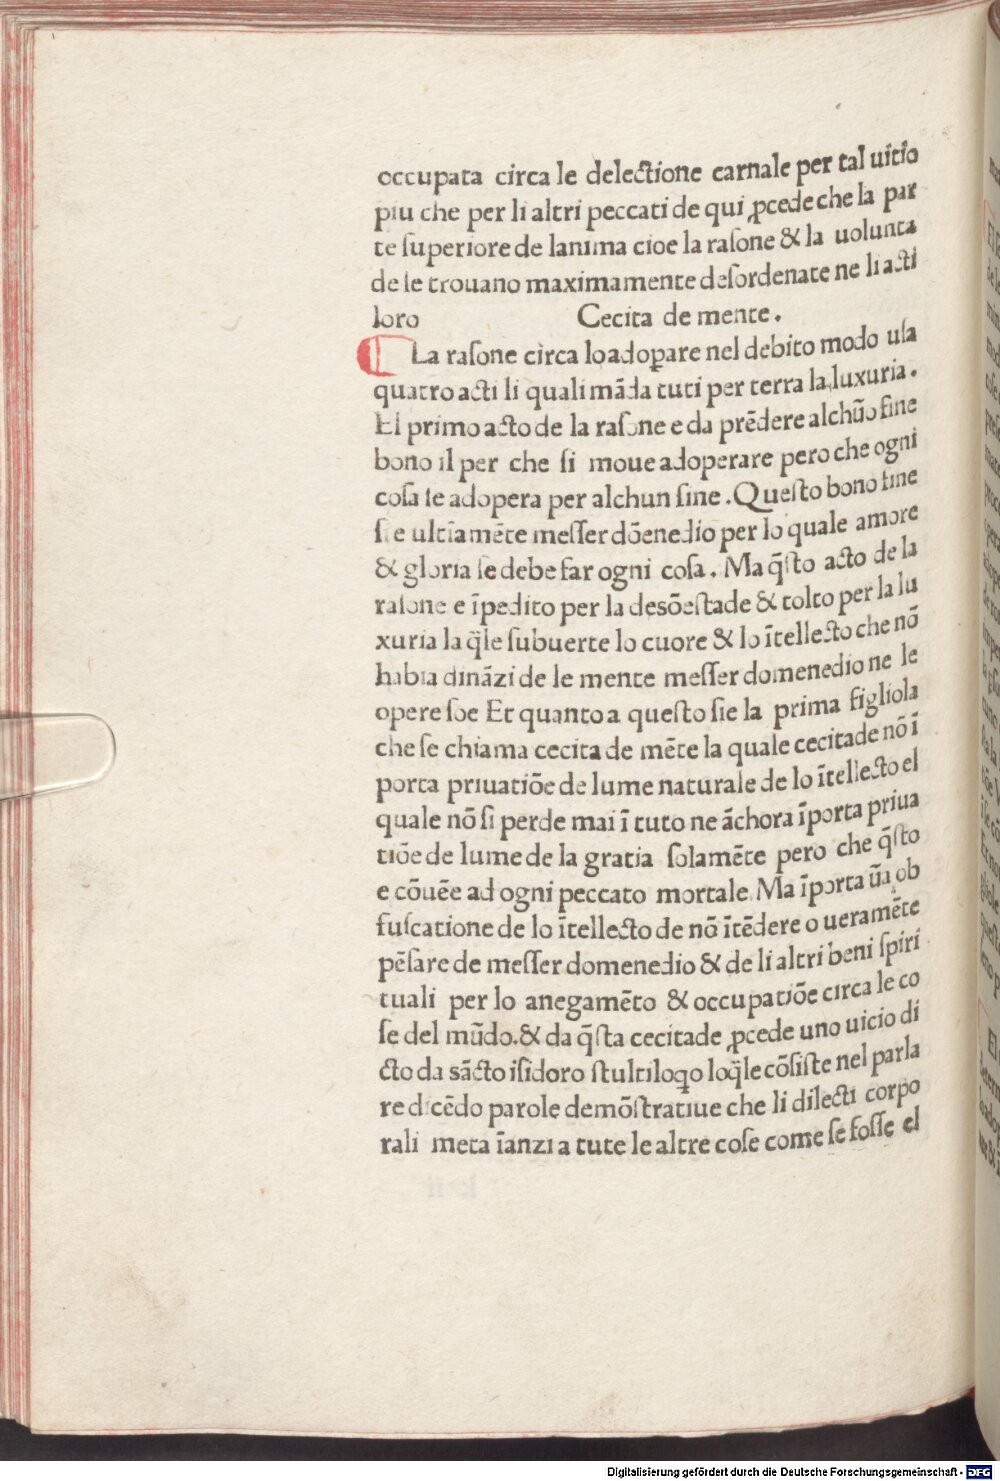 occupata circa le delectione carnale per tal uitio
piu che per li altri peccati de qui ꝓcede che la par
te ſuperiore de lanima cioe la raſone & la uolunta
de ſe trouano maximamente deſordenate ne li acti
loro Cecita de mente.
La raſone circa lo adoꝑare nel debito modo uſa
quatro acti li quali mãda tuti per terra la luxuria.
El primo acto de la raſone e da prẽdere alchũo fine
bono il per che ſi moue adoperare pero che ogni
coſa ſe adopera per alchun fine. Queſto bono fine
ſi e ultĩamẽte meſſer dõenedio per lo quale amore
& gloria ſe debe far ogni coſa. Ma q̃ſto acto de la
raſone e ĩpedito per la desõeſtade & tolto per la lu
xuria la q̃le ſubuerte lo cuore & lo ĩtellecto che nõ
habia dinãzi de le mente meſſer domenedio ne le
opere ſoe Et quanto a queſto ſie la prima figliola
che ſe chiama cecita de mẽte la quale cecitade nõ ĩ
porta priuatiõe de lume naturale de lo ĩtellecto el
quale nõ ſi perde mai ĩ tuto ne ãchora ĩporta priua
tiõe de lume de la gratia ſolamẽte pero che q̃ſto
e cõuẽe ad ogni peccato mortale Ma ĩporta ũa ob
fuſcatione de lo ĩtellecto de nõ ĩtẽdere o ueramẽte
pẽſare de meſſer domenedio & de li altri beni ſpiri
tuali per lo anegamẽto & occupatiõe circa le co
ſe del mũdo.& da q̃ſta cecitade ꝓcede uno uicio di
cto da sãcto iſidoro ſtultiloq̣o loq̃le cõſiſte nel parla
re dicẽdo parole demõſtratiue che li dilecti corpo
rali meta ĩanzi a tute le altre coſe come ſe foſſe el
Digitalisierung gefördert durch die Deutsche Forschungsgemeinschaft - DFG